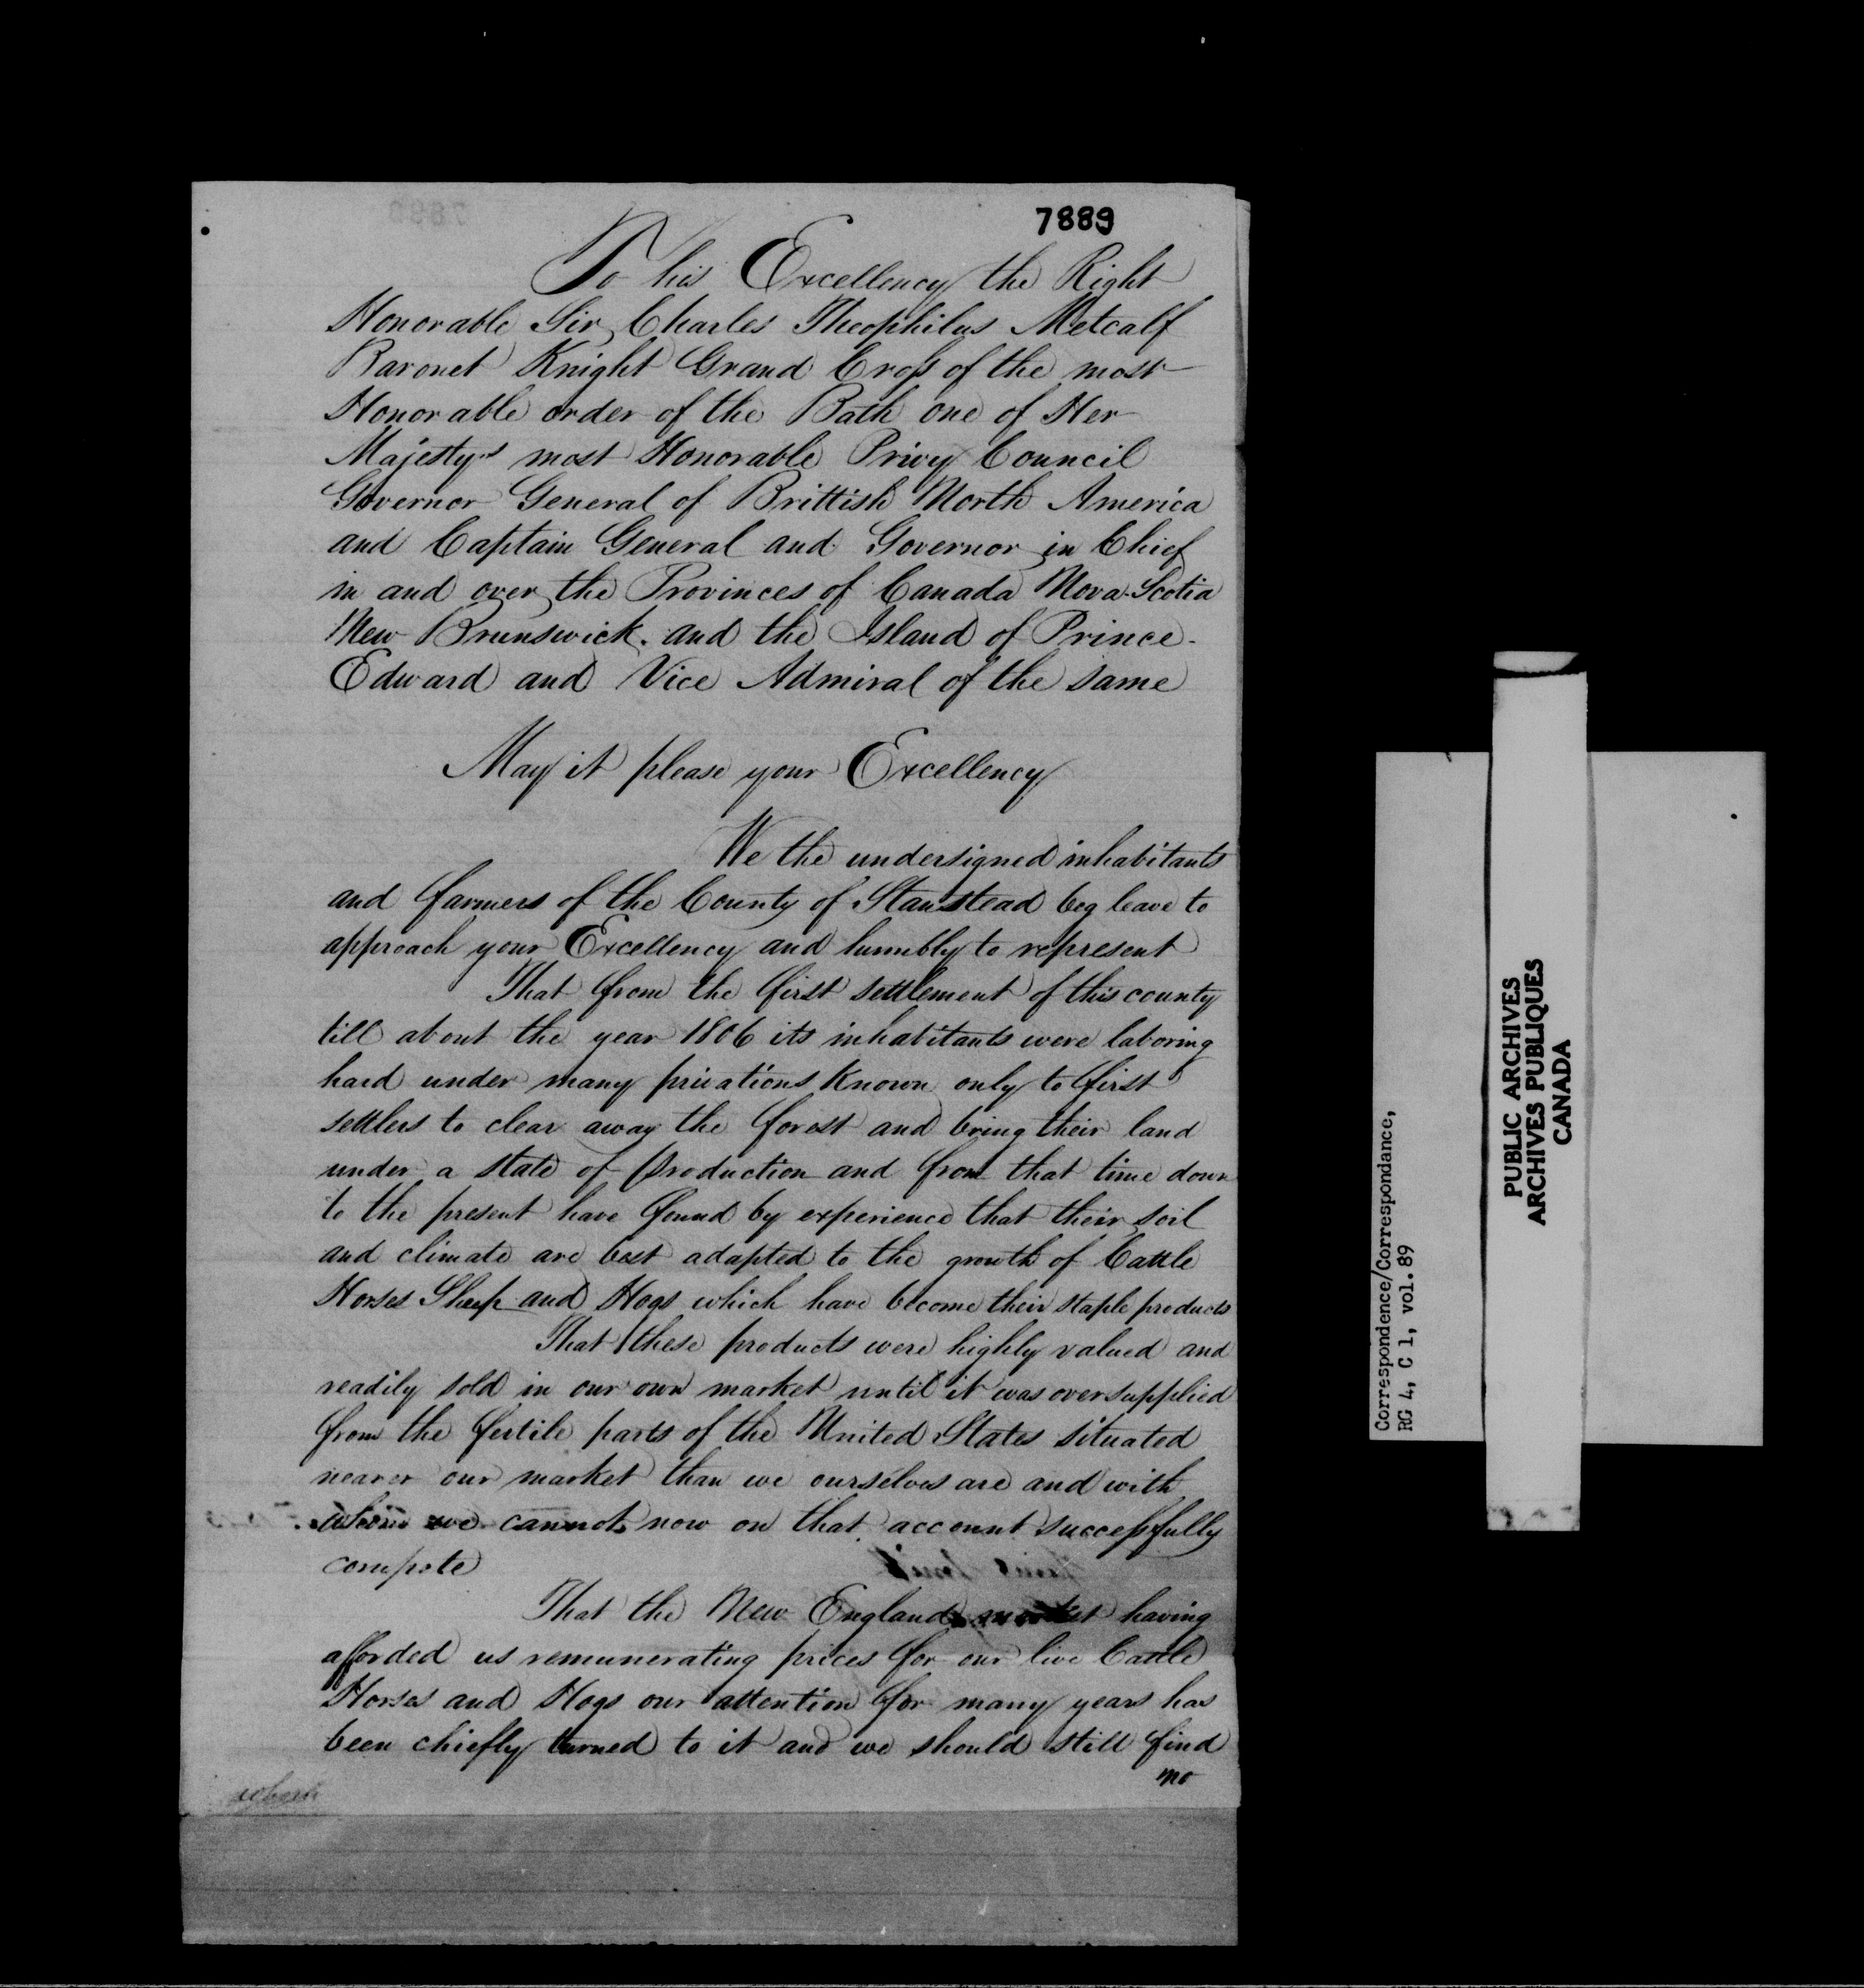 7889
To his Excellency the Right
Honorable Sir Charles Theophilus Metcalf
Baronet Knight Grand Cross of the most
Honorable order of the Bath one of Her
Majesty's most Honorable Privy Council
Governor General of Brittish North America
and Captain General and Governor in Chief
in and over the Provinces of Canada Nova-Scotia
New Brunswick. and the Island of Prince-
Edward and Vice Admiral of the same
May it please your Excellency
We the undersigned inhabitants
and farmers of the County of Stanstead beg leave to
approach your Excellency and humbly to represent
That from the first settlement of this county
till about the year 1806 its inhabitants were laboring
hard under many privations known only to first
settlers to clear away the forest and bring their land
under a state of production and from that time down
to the present have found by experience that their soil
and climate are best adapted to the growth of Cattle
Horses Sheep and Hogs which have become their staple products
That these products were highly valued and
readily sold in our own market until it was over supplied
from the fertile parts of the United States situated
nearer our market than we ourselves are and with
whom we cannot now on that account successfully
compete
That the New England market having
afforded us remunerating prices for our live Cattle
Horses and Hogs our attention for many years has
been chiefly turned to it and we should still find
no
Correspondence/Correspondance,
RG 4, C 1, vol.89
PUBLIC ARCHIVES
ARCHIVES PUBLIQUES
CANADA